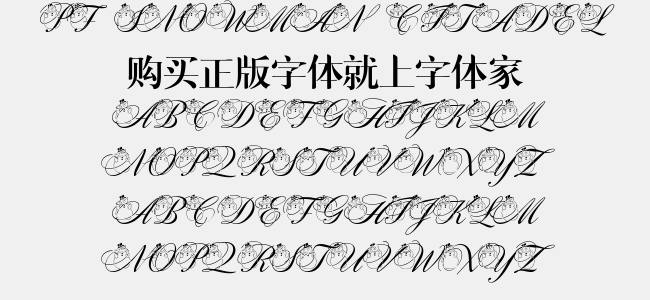 PF SNOWMAN CITADEL
购买正版字体就上字体家
ABCDEFGHIJKLM
NOPQRSTUVWXYZ
ABCDEFGHIJKLM
NOPQRSTUVWXYZ